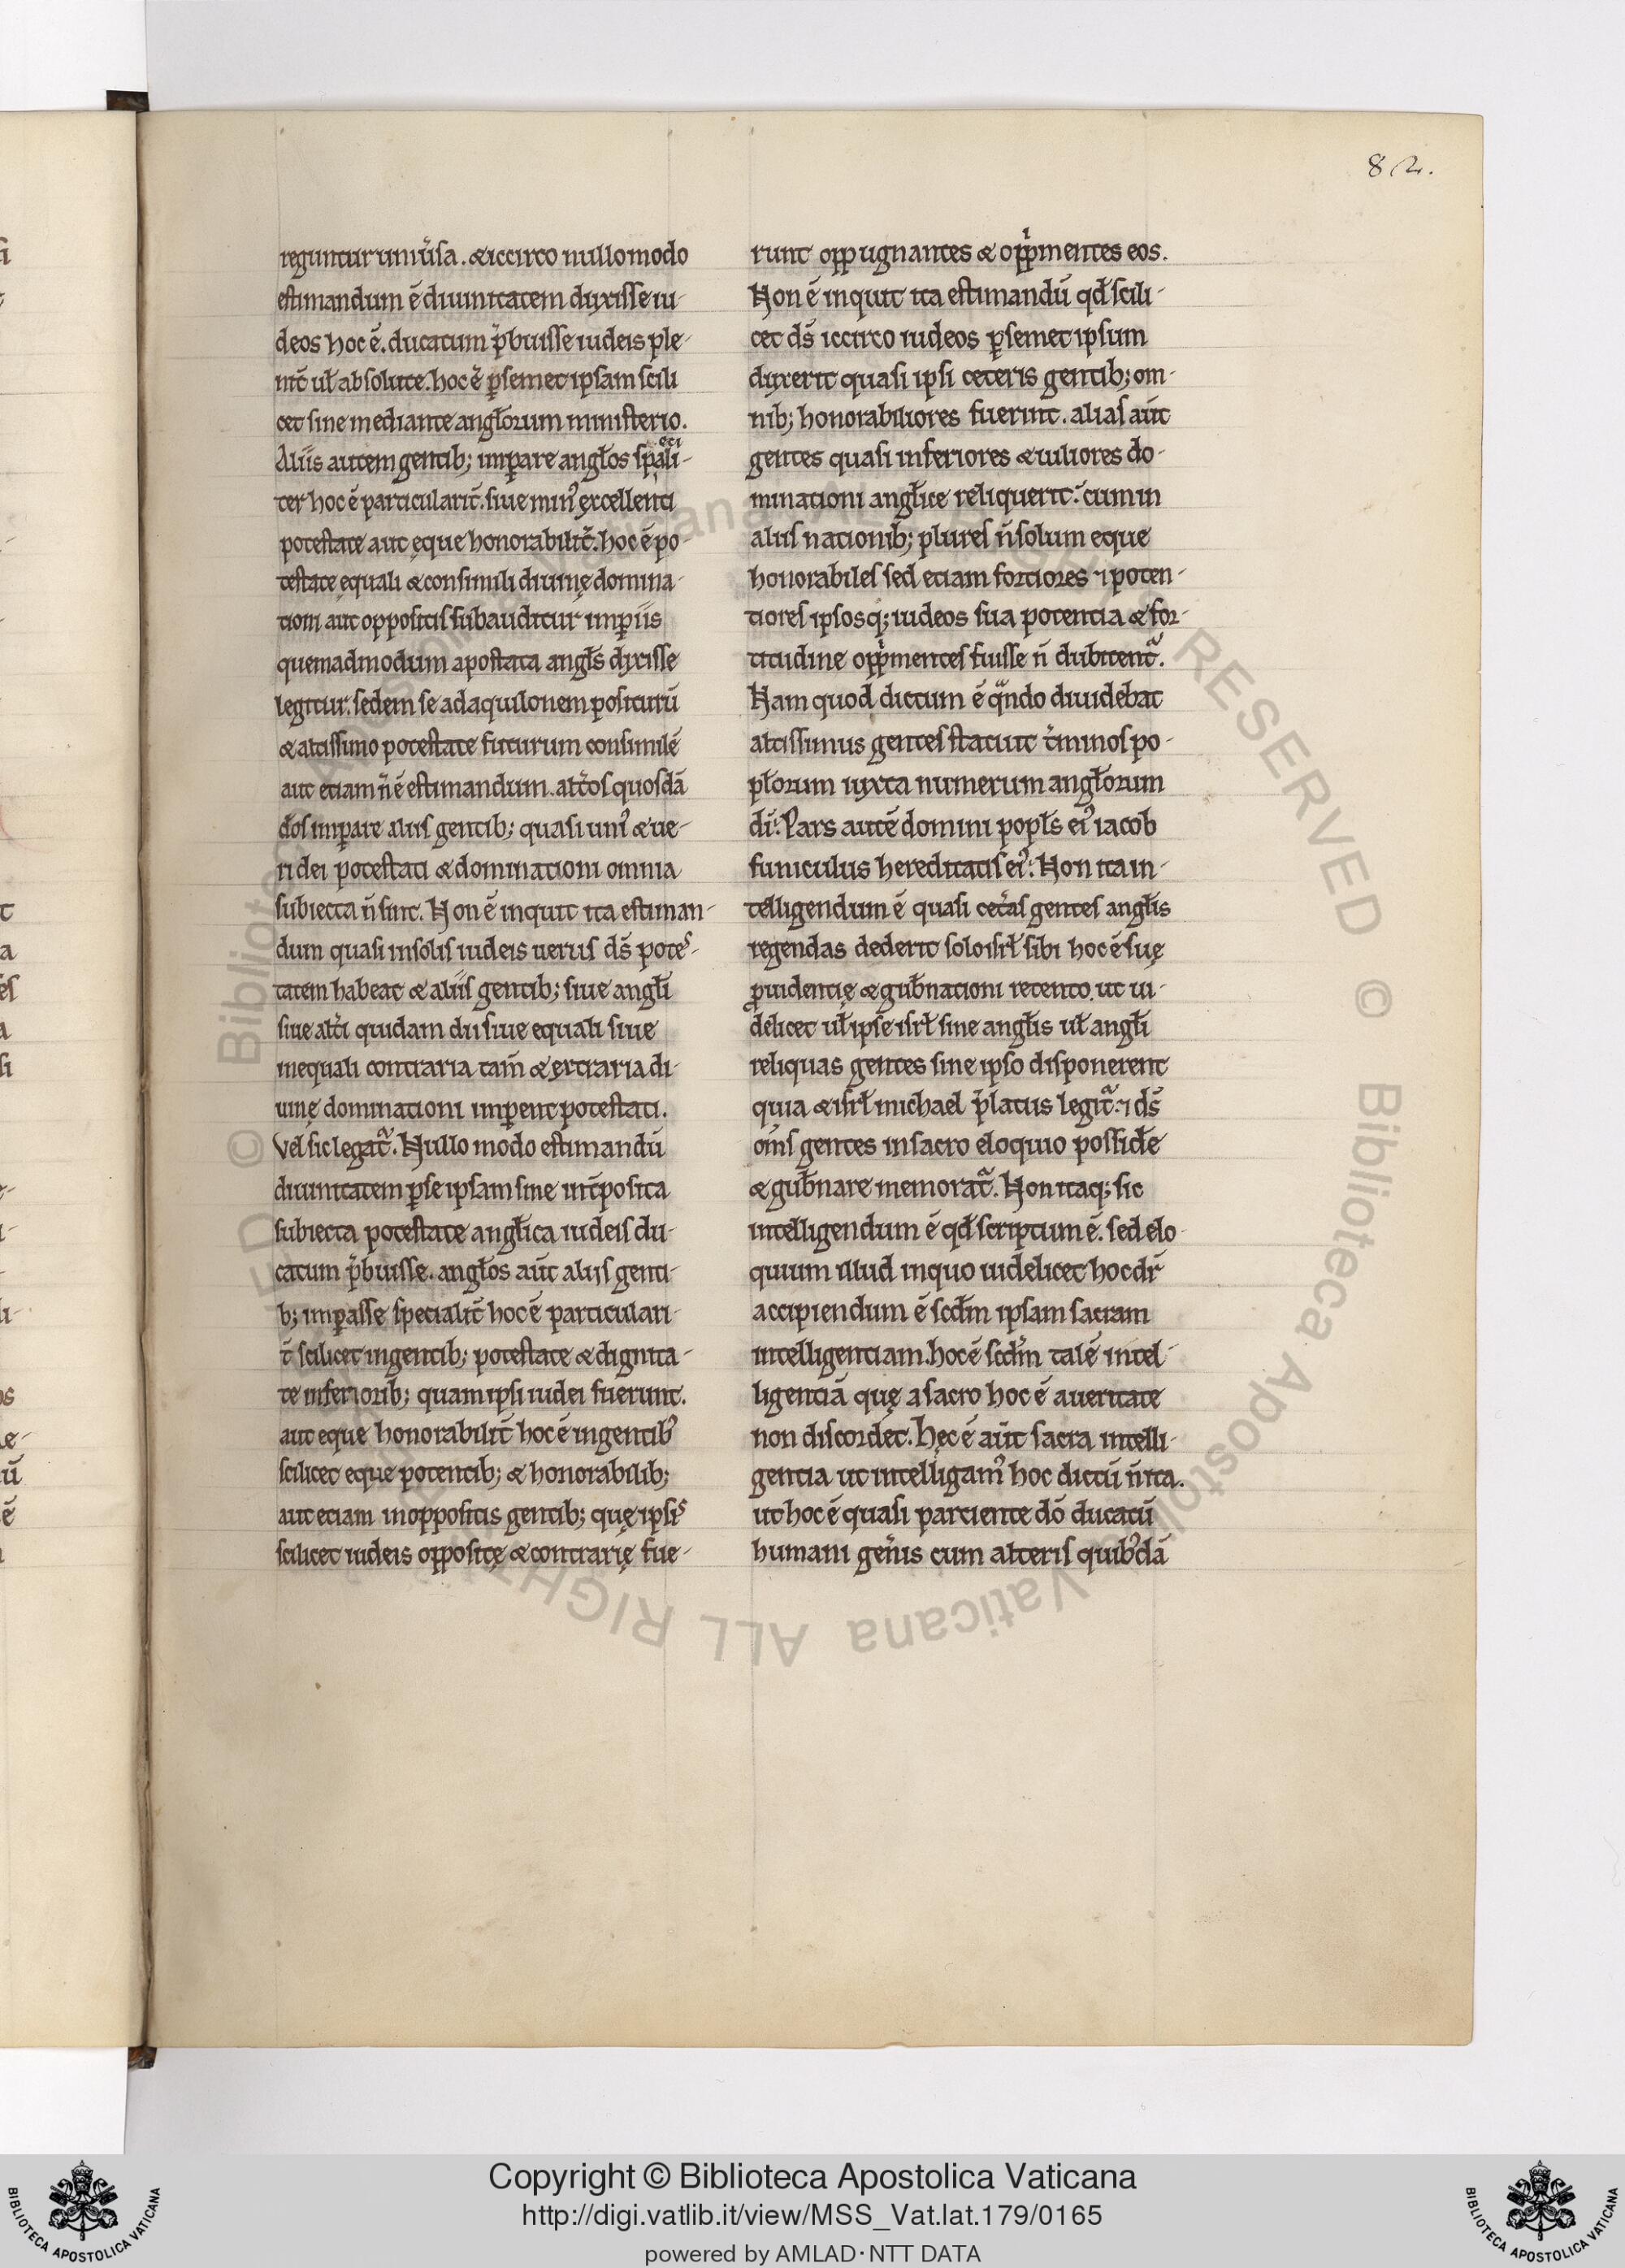 82.
regunturuniu͛sa. & iccirco nullomodo
estimandum ē diuinitatem dixisse iu-
deos hoc ē. ducatum p̄buisse iudeis ple-
nit̄ ul̄ absolute. hoc ē ꝑsemet ipsam scili
cet sine mediante angl̄orum ministerio.
Aliis autem gentib; imꝑare angl̄os sp̄ali-
ter hoc ē particularit̄. siue min᾽ excellenti
potestate aut ęque honorabilit̄. hoc ē po-
testate equali & consimili diuinę domina-
tioni aut oppositis subauditur imꝑiis
quemadmodum apostata angl̄s dixisse
legitur. sedem se ad aquilonem positurū
& altissimo potestate futurum consimilē
aut etiam n̄ ē estimandum. alt̄os quosdā
d̄os imꝑare aliis gentib; quasi uni᾽ & ue-
ri dei potestati & dominationi omnia
subiecta n̄ sint. Non ē inquit ita estiman-
dum quasi in solis iudeis uerus ds̄ potes-
tatem habeat & aliis gentib; siue angl̄i
siue alt̄i quidam dii siue equali siue
inequali contraria tam̄ & extraria di-
uinę dominationi imꝑent potestati.
Vel sic legat̄. Nullo modo estimandū
diuinitatem ꝑse ipsam sine int̄posita
subiecta potestate angl̄ica iudeis du-
catum p̄buisse. angl̄os aūt aliis genti-
b; imꝑasse specialit̄ hoc ē particulari-
t̄ scilicet in gentib; potestate & dignita-
te inferiorib; quam ipsi iudei fuerunt.
aut eque honorabilit̄ hoc ē in gentib᾽
scilicet eque potentib; & honorabilib;
aut etiam in oppositis gentib; quę ipsis
scilicet iudeis oppositę & contrarię fue-
runt oppugnantes & opp̄mentes eos.
Non ē inquit ita estimandū qd̄ scili-
cet ds̄ iccirco iudeos ꝑsemet ipsum
dixerit quasi ipsi ceteris gentib; om-
nib; honorabiliores fuerint. alias aūt
gentes quasi inferiores & uiliores do-
minationi angl̄ice reliquerit. cum in
aliis nationib; plures n̄ solum eque
honorabiles sed etiam fortiores ⁊ poten-
tiores ipsosq; iudeos sua potentia & for-
titudine opp̄mentes fuisse n̄ dubitent̄.
Nam quod dictum ē qͣndo diuidebat
altissimus gentes statuit t̄minos po-
pl̄orum iuxta numerum angl̄orum
dī. Pars autē domini popl̄s ei᾽ iacob
funiculus hereditatis ei᾽. Non ita in-
telligendum ē quasi cet̄as gentes angl̄is
regendas dederit solo isrl̄ sibi hoc ē suę
ꝓuidentię & gub̄nationi retento. ut ui-
delicet ul̄ ipse isrl̄ sine angl̄is ul̄ angl̄i
reliquas gentes sine ipso disponerent
quia & isrl̄ michael p̄latus legit̄. ⁊ ds̄
om̄s gentes in sacro eloquio possid̄e
& gub̄nare memorat̄. Non itaq; sic
intelligendum ē qd̄ scriptum ē. sed elo-
quium illud in quo uidelicet hoc dr̄
accipiendum ē scd̄m ipsam sacram
intelligentiam. hoc ē scd̄m talē intel-
ligentiā quę a sacro hoc ē a ueritate
non discordet. Hęc ē aūt sacra intelli-
gentia ut intelligam᾽ hoc dictū n̄ ita.
ut hoc ē quasi partiente dō ducatū
humani gen̄is cum alteris quib᾽dā
© Biblioteca Apostolica Vaticana ALL RIGHTS RESERVED
Copyright © Biblioteca Apostolica Vaticana
http://digi.vatlib.it/view/MSS_Vat.lat.179/0165
powered by AMLAD·NTT DATA
BIBLIOTECA APOSTOLICA VATICANA
BIBLIOTECA APOSTOLICA VATICANA